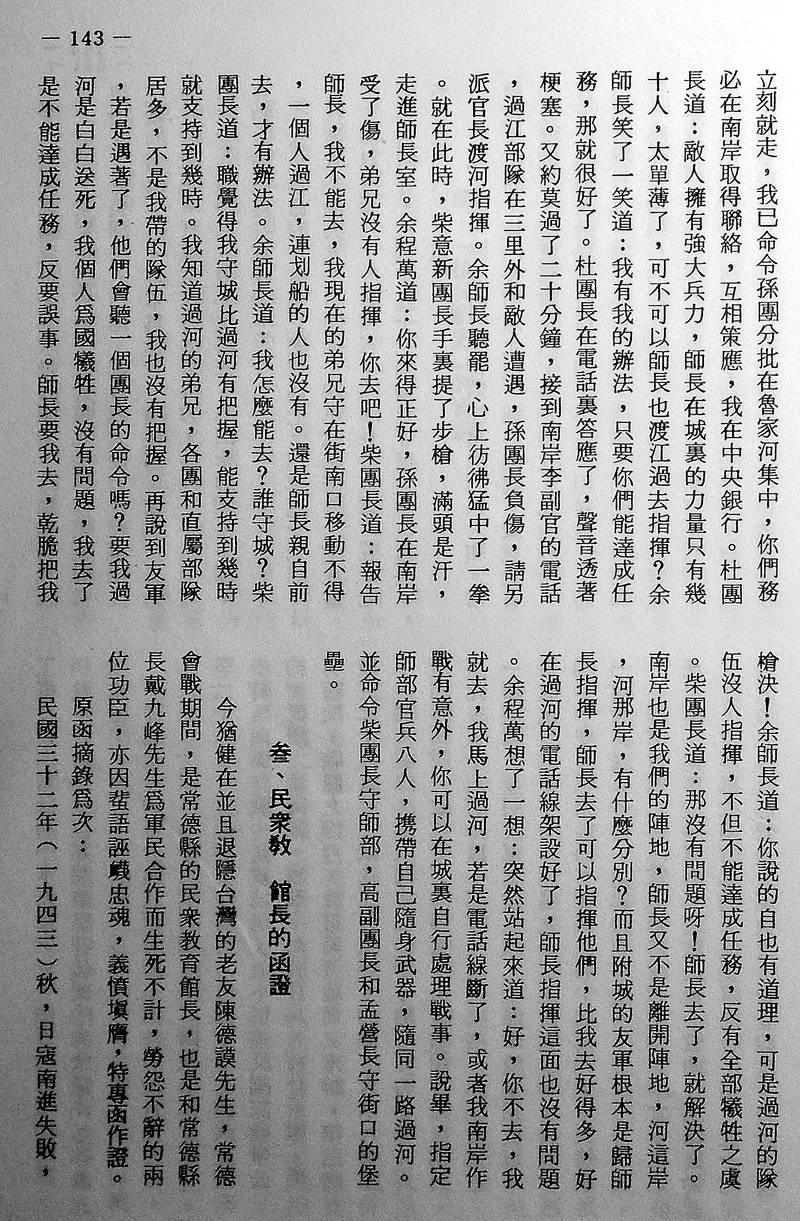 — 143 —
立刻就走，我已命令孫團分批在魯家河集中，你們務
必在南岸取得聯絡，互相策應，我在中央銀行。杜團
長道：敵人擁有強大兵力，師長在城裏的力量只有幾
十人，太單薄了，可不可以師長也渡江過去指揮？余
師長笑了一笑道：我有我的辦法，只要你們能達成任
務，那就很好了。杜團長在電話裏答應了，聲音透著
梗塞。又約莫過了二十分鐘，接到南岸李副官的電話
，過江部隊在三里外和敵人遭遇，孫團長負傷，請另
派官長渡河指揮。余師長聽罷，心上彷彿猛中了一拳
。就在此時，柴意新團長手裏提了步槍，滿頭是汗，
走進師長室。余程萬道：你來得正好，孫團長在南岸
受了傷，弟兄沒有人指揮，你去吧！柴團長道：報告
師長，我不能去，我現在的弟兄守在街南口移動不得
，一個人過江，連划船的人也沒有。還是師長親自前
去，才有辦法。余師長道：我怎麼能去？誰守城？柴
團長道：職覺得我守城比過河有把握，能支持到幾時
就支持到幾時。我知道過河的弟兄，各團和直屬部隊
居多，不是我帶的隊伍，我也沒有把握。再說到友軍
，若是遇著了，他們會聽一個團長的命令嗎？要我過
河是白白送死，我個人爲國犧牲，沒有問題，我去了
是不能達成任務，反要誤事。師長要我去，乾脆把我
槍決！余師長道：你說的自也有道理，可是過河的隊
伍沒人指揮，不但不能達成任務，反有全部犧牲之虞
。柴團長道：那沒有問題呀！師長去了，就解決了。
南岸也是我們的陣地，師長又不是離開陣地，河這岸
，河那岸，有什麼分別？而且附城的友軍根本是歸師
長指揮，師長去了可以指揮他們，比我去好得多，好
在過河的電話線架設好了，師長指揮這面也沒有問題
。余程萬想了一想：突然站起來道：好，你不去，我
就去，我馬上過河，若是電話線斷了，或者我南岸作
戰有意外，你可以在城裏自行處理戰事。說畢，指定
師部官兵八人，攜帶自己隨身武器，隨同一路過河。
並命令柴團長守師部，高副團長和孟營長守街口的堡
壘。
叁、民衆敎　館長的函證
今猶健在並且退隱台灣的老友陳德謨先生，常德
會戰期間，是常德縣的民衆教育館長，也是和常德縣
長戴九峰先生爲軍民合作而生死不計，勞怨不辭的兩
位功臣，亦因蜚語誣衊忠魂，義憤塡膺，特專函作證。
原函摘錄爲次：
民國三十二年（一九四三）秋，日寇南進失敗，